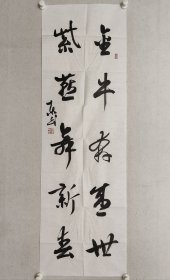 金牛奔盛世
紫燕舞新春